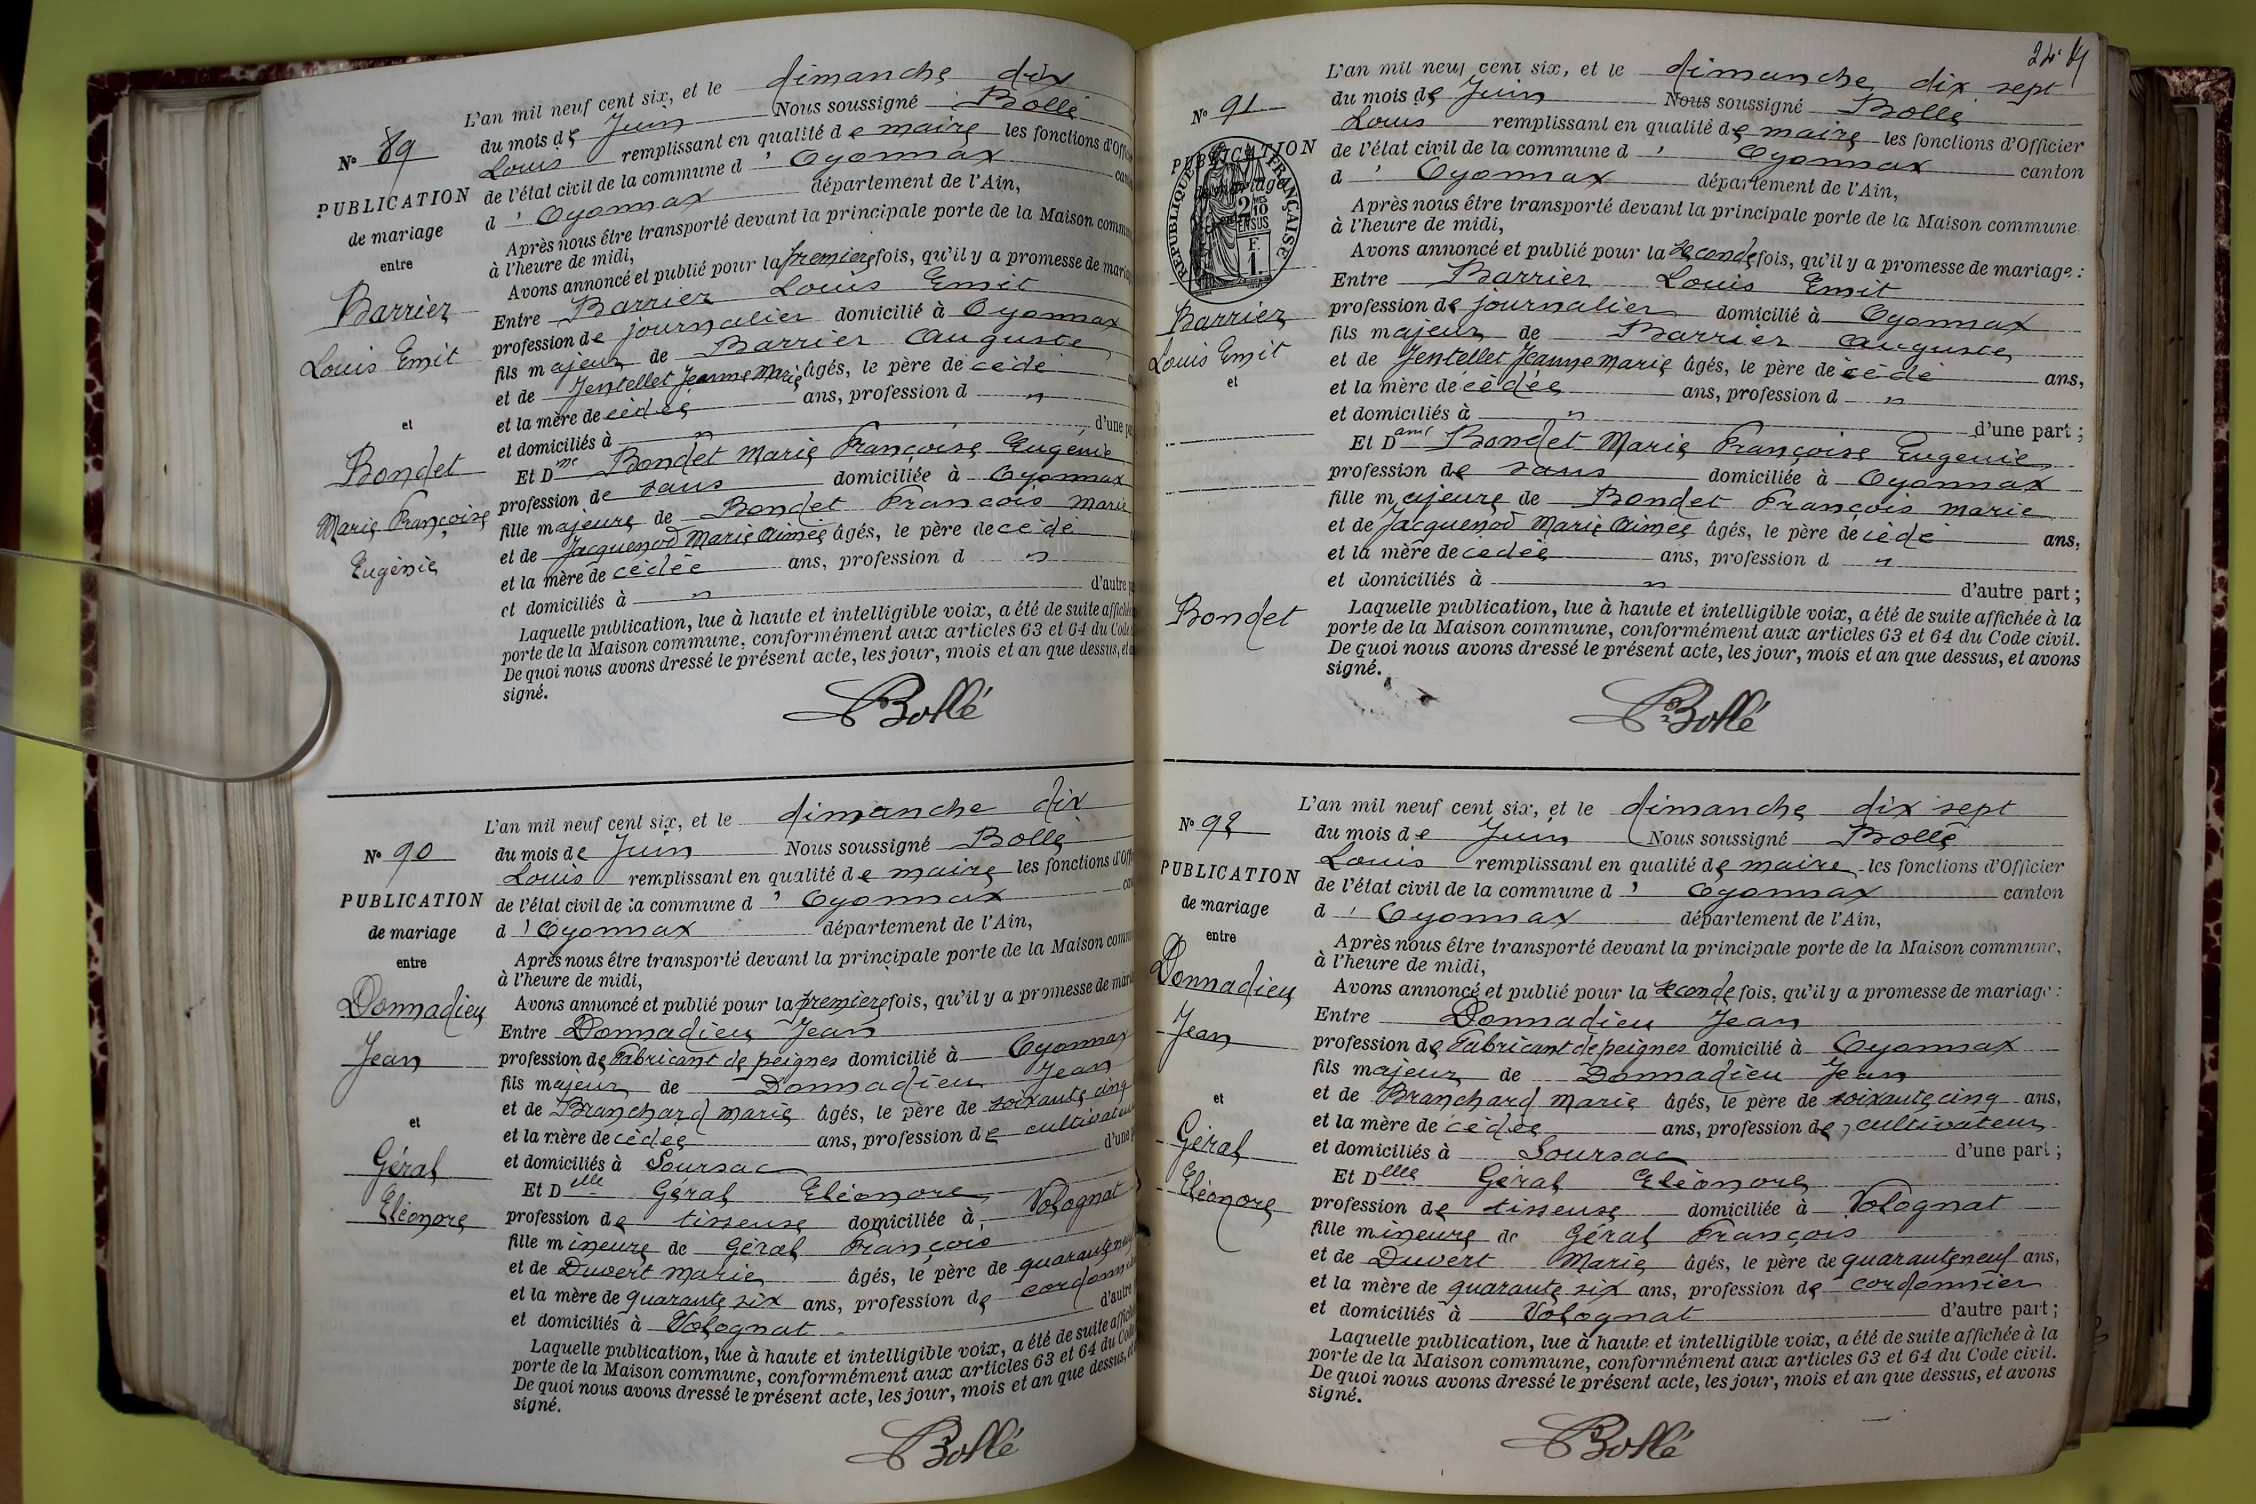 N° 89
PUBLICATION
de mariage
entre
Barrier
Louis Emit
et
Bondet
Marie Françoise
Eugénie
L'an mil neuf cent six, et le dimanche dix
du mois de Juin Nous soussigné Bollé
Louis remplissant en qualité de maire les fonctions d'Offi
de l'état civil de la commune d' Oyonnax
d' Oyonnax département de l'Ain,
Après nous être transporté devant la principale porte de la Maison commu
à l'heure de midi,
Avons annoncé et publié pour la premiere fois, qu'il y a promesse de maria
Entre Barrier Louis Emit
profession de journalier domicilié à Oyonnax
fils majeur de Barrier Auguste
et de Jentellet Jeanne Marie âgés, le père decédé
et la mère decédée ans, profession d "
et domiciliés à " d'une pa
Et Dme Bondet Marie Françoise Eugénie
profession de sans domiciliée à Oyonnax
fille majeure de Bondet François Marie
et de Jacquenod Marie Aimée âgés, le père decédé
et la mère decédée ans, profession d "
et domiciliés à " d'autre pa
Laquelle publication, lue à haute et intelligible voix, a été de suite affichée
porte de la Maison commune, conformément aux articles 63 et 64 du Code
De quoi nous avons dressé le présent acte, les jour, mois et an que dessus, et
signé.
Bollé
N° 90
PUBLICATION
de mariage
entre
Donnadieu
Jean
et
Géral
Eléonore
L'an mil neuf cent six, et le dimanche dix
du mois de Juin Nous soussigné Bollé
Louis remplissant en qualité de maire les fonctions d'Offi
de l'état civil de la commune d' Oyonnax
d' Oyonnax département de l'Ain,
Après nous être transporté devant la principale porte de la Maison comm
à l'heure de midi,
Avons annoncé et publié pour la premiere fois, qu'il y a promesse de maria
Entre Donnadieu Jean
profession de Fabricant de peignes domicilié à Oyonnax
fils majeur de Donnadieu Jean
et de Branchard Marie âgés, le père de soixante cinq
et la mère decédée ans, profession de cultivateur
et domiciliés à Soursac d'une p
Et Delle Géral Eléonore
profession de tisseuse domiciliée à Volognat
fille mineure de Géral François
et de Duvert Marie âgés, le père de quarante neuf
et la mère de quarante six ans, profession de cordonnie
et domiciliés à Volognat d'autre
Laquelle publication, lue à haute et intelligible voix, a été de suite affiché
porte de la Maison commune, conformément aux articles 63 et 64 du Code
De quoi nous avons dressé le présent acte, les jour, mois et an que dessus, et
signé.
Bollé
N° 91
PUBLICATION
de mariage
RÉPUBLIQUE FRANÇAISE
2 10
EN SUS
F.
1.
Barrier
Louis Emit
et
Bondet
L'an mil neuf cent six, et le dimanche dix sept
du mois de Juin Nous soussigné Bollé
Louis remplissant en qualité de maire les fonctions d'Officier
de l'état civil de la commune d' Oyonnax canton
d' Oyonnax département de l'Ain,
Après nous être transporté devant la principale porte de la Maison commune
à l'heure de midi,
Avons annoncé et publié pour la seconde fois, qu'il y a promesse de mariage :
Entre Barrier Louis Emit
profession de journalier domicilié à Oyonnax
fils majeur de Barrier Auguste
et de Jentellet Jeanne Marie âgés, le père de cédé ans,
et la mère decédée ans, profession d "
et domiciliés à " d'une part ;
Et Dame Bondet Marie Françoise Eugenie
profession de sans domiciliée à Oyonnax
fille majeure de Bondet François Marie
et de Jacquenod Marie Aimée âgés, le père decédé ans,
et la mère decédée ans, profession d "
et domiciliés à " d'autre part ;
Laquelle publication, lue à haute et intelligible voix, a été de suite affichée à la
porte de la Maison commune, conformément aux articles 63 et 64 du Code civil.
De quoi nous avons dressé le présent acte, les jour, mois et an que dessus, et avons
signé.
Bollé
N° 92
PUBLICATION
de mariage
entre
Donnadieu
Jean
et
Géral
Eléonore
L'an mil neuf cent six, et le dimanche dix sept
du mois de Juin Nous soussigné Bollé
Louis remplissant en qualité de maire les fonctions d'Officier
de l'état civil de la commune d' Oyonnax canton
d' Oyonnax département de l'Ain,
Après nous être transporté devant la principale porte de la Maison commune,
à l'heure de midi,
Avons annoncé et publié pour la seconde fois, qu'il y a promesse de mariage :
Entre Donnadieu Jean
profession de Fabricant de peignes domicilié à Oyonnax
fils majeur de Donnadieu Jean
et de Branchard Marie âgés, le père de soixante cinq ans,
et la mère decédée ans, profession de cultivateur
et domiciliés à Soursac d'une part ;
Et Delle Géral Eléonore
profession de tisseuse domiciliée à Volognat
fille mineure de Géral François
et de Duvert Marie âgés, le père de quarante neuf ans,
et la mère de quarante six ans, profession de cordonnier
et domiciliés à Volognat d'autre part ;
Laquelle publication, lue à haute et intelligible voix, a été de suite affichée à la
porte de la Maison commune, conformément aux articles 63 et 64 du Code civil.
De quoi nous avons dressé le présent acte, les jour, mois et an que dessus, et avons
signé.
Bollé